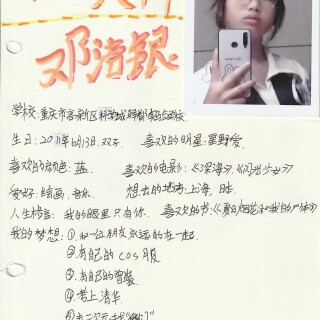 邓海银
学校:重庆市高新区科学城
生日:2011年6月13日.双子 喜欢的明星:星野爱.
喜欢的颜色:蓝. 喜欢的电影:《深海》.《闪光少女》
爱好:绘画.音乐. 想去的地方:上海,日本.
人生格言:我的眼里只有你. 喜欢的书:《夏日烟花和我的尸体》
我的梦想:①和一位朋友永远的在一起.
②有自己的cos服
③有自己的
④考上清华.
⑤